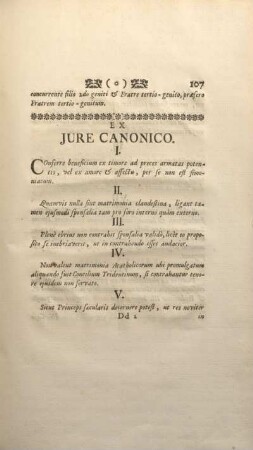 (o) 107
concurrente filio 2do geniti & Fratre tertio-genito, præfero
Fratrem tertio-genitum.
EX
JURE CANONICO.
I.
Conferre beneficium ex timore ad preces armatas poten-
tis, vel ex amore & affectu, per se non est simo-
niacum.
II.
Quamvis nulla sint matrimonia clandestina, ligant ta-
men ejusmodi sponsalia tam pro foro interno quàm externo.
III.
Plenè ebrius non contrahit sponsalia validè, licèt eo propo-
sito se inebriaverit, ut in contrahendo esset audacior.
IV.
Non valent matrimonia Acatholicorum ubi promulgatum
aliquando fuit Concilium Tridentinum, si contrahantur teno-
re ejusdem non servato.
V.
Sicut Princeps sæcularis decernere potest, ut res noviter
Dd 2 in